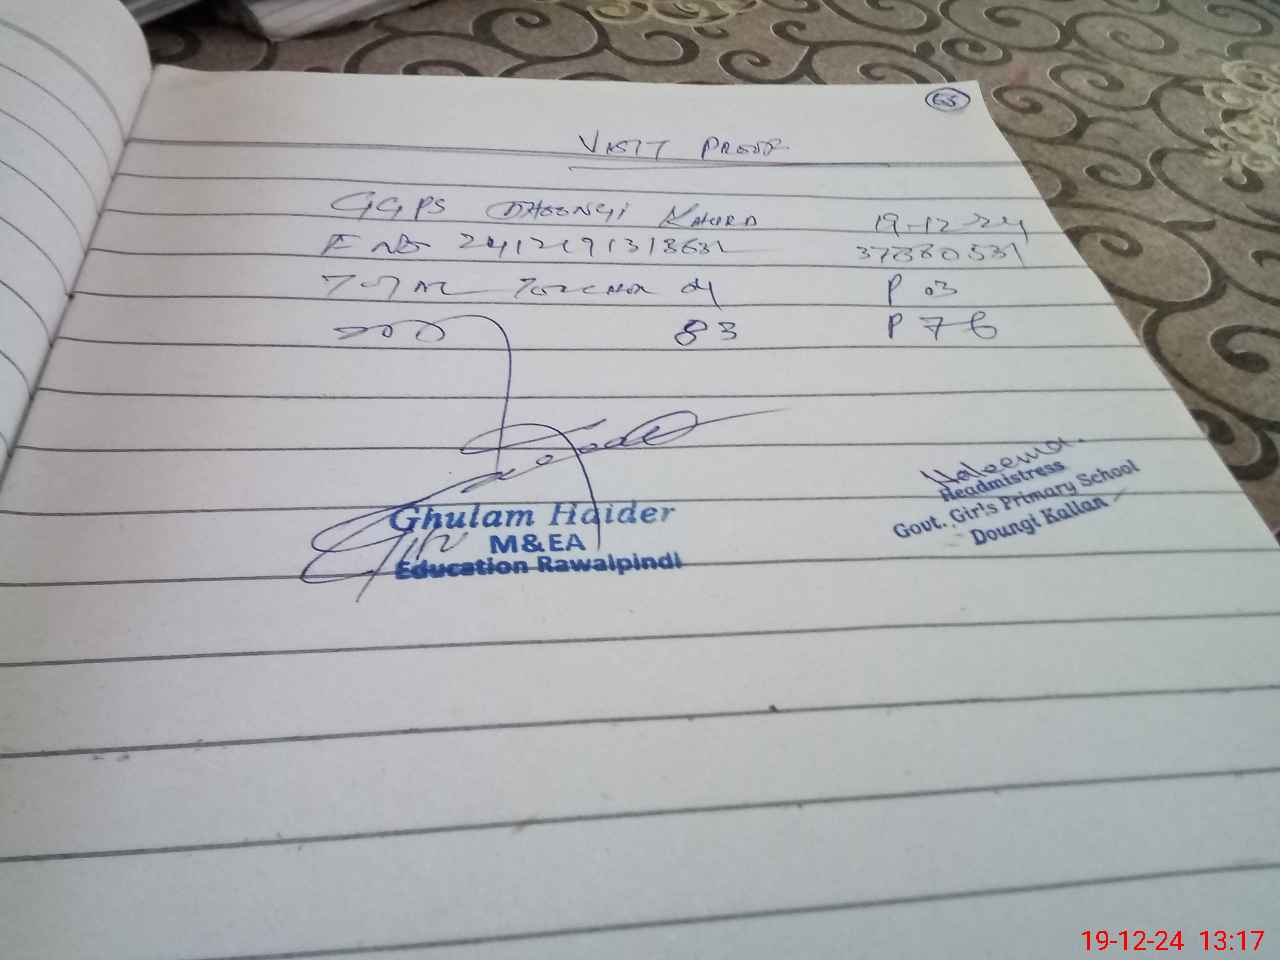 65
VISIT PROOF
GGPS DHOONGI KHURD 19-12-24
F NO 2412191313631 37330531
TOTAL TEACHER 04 P 03
83 P 76
Haleema.
Headmistress
Govt. Girls Primary School
Doungi Kallan
Ghulam Haider
M&EA
Education Rawalpindi
19-12-24 13:17